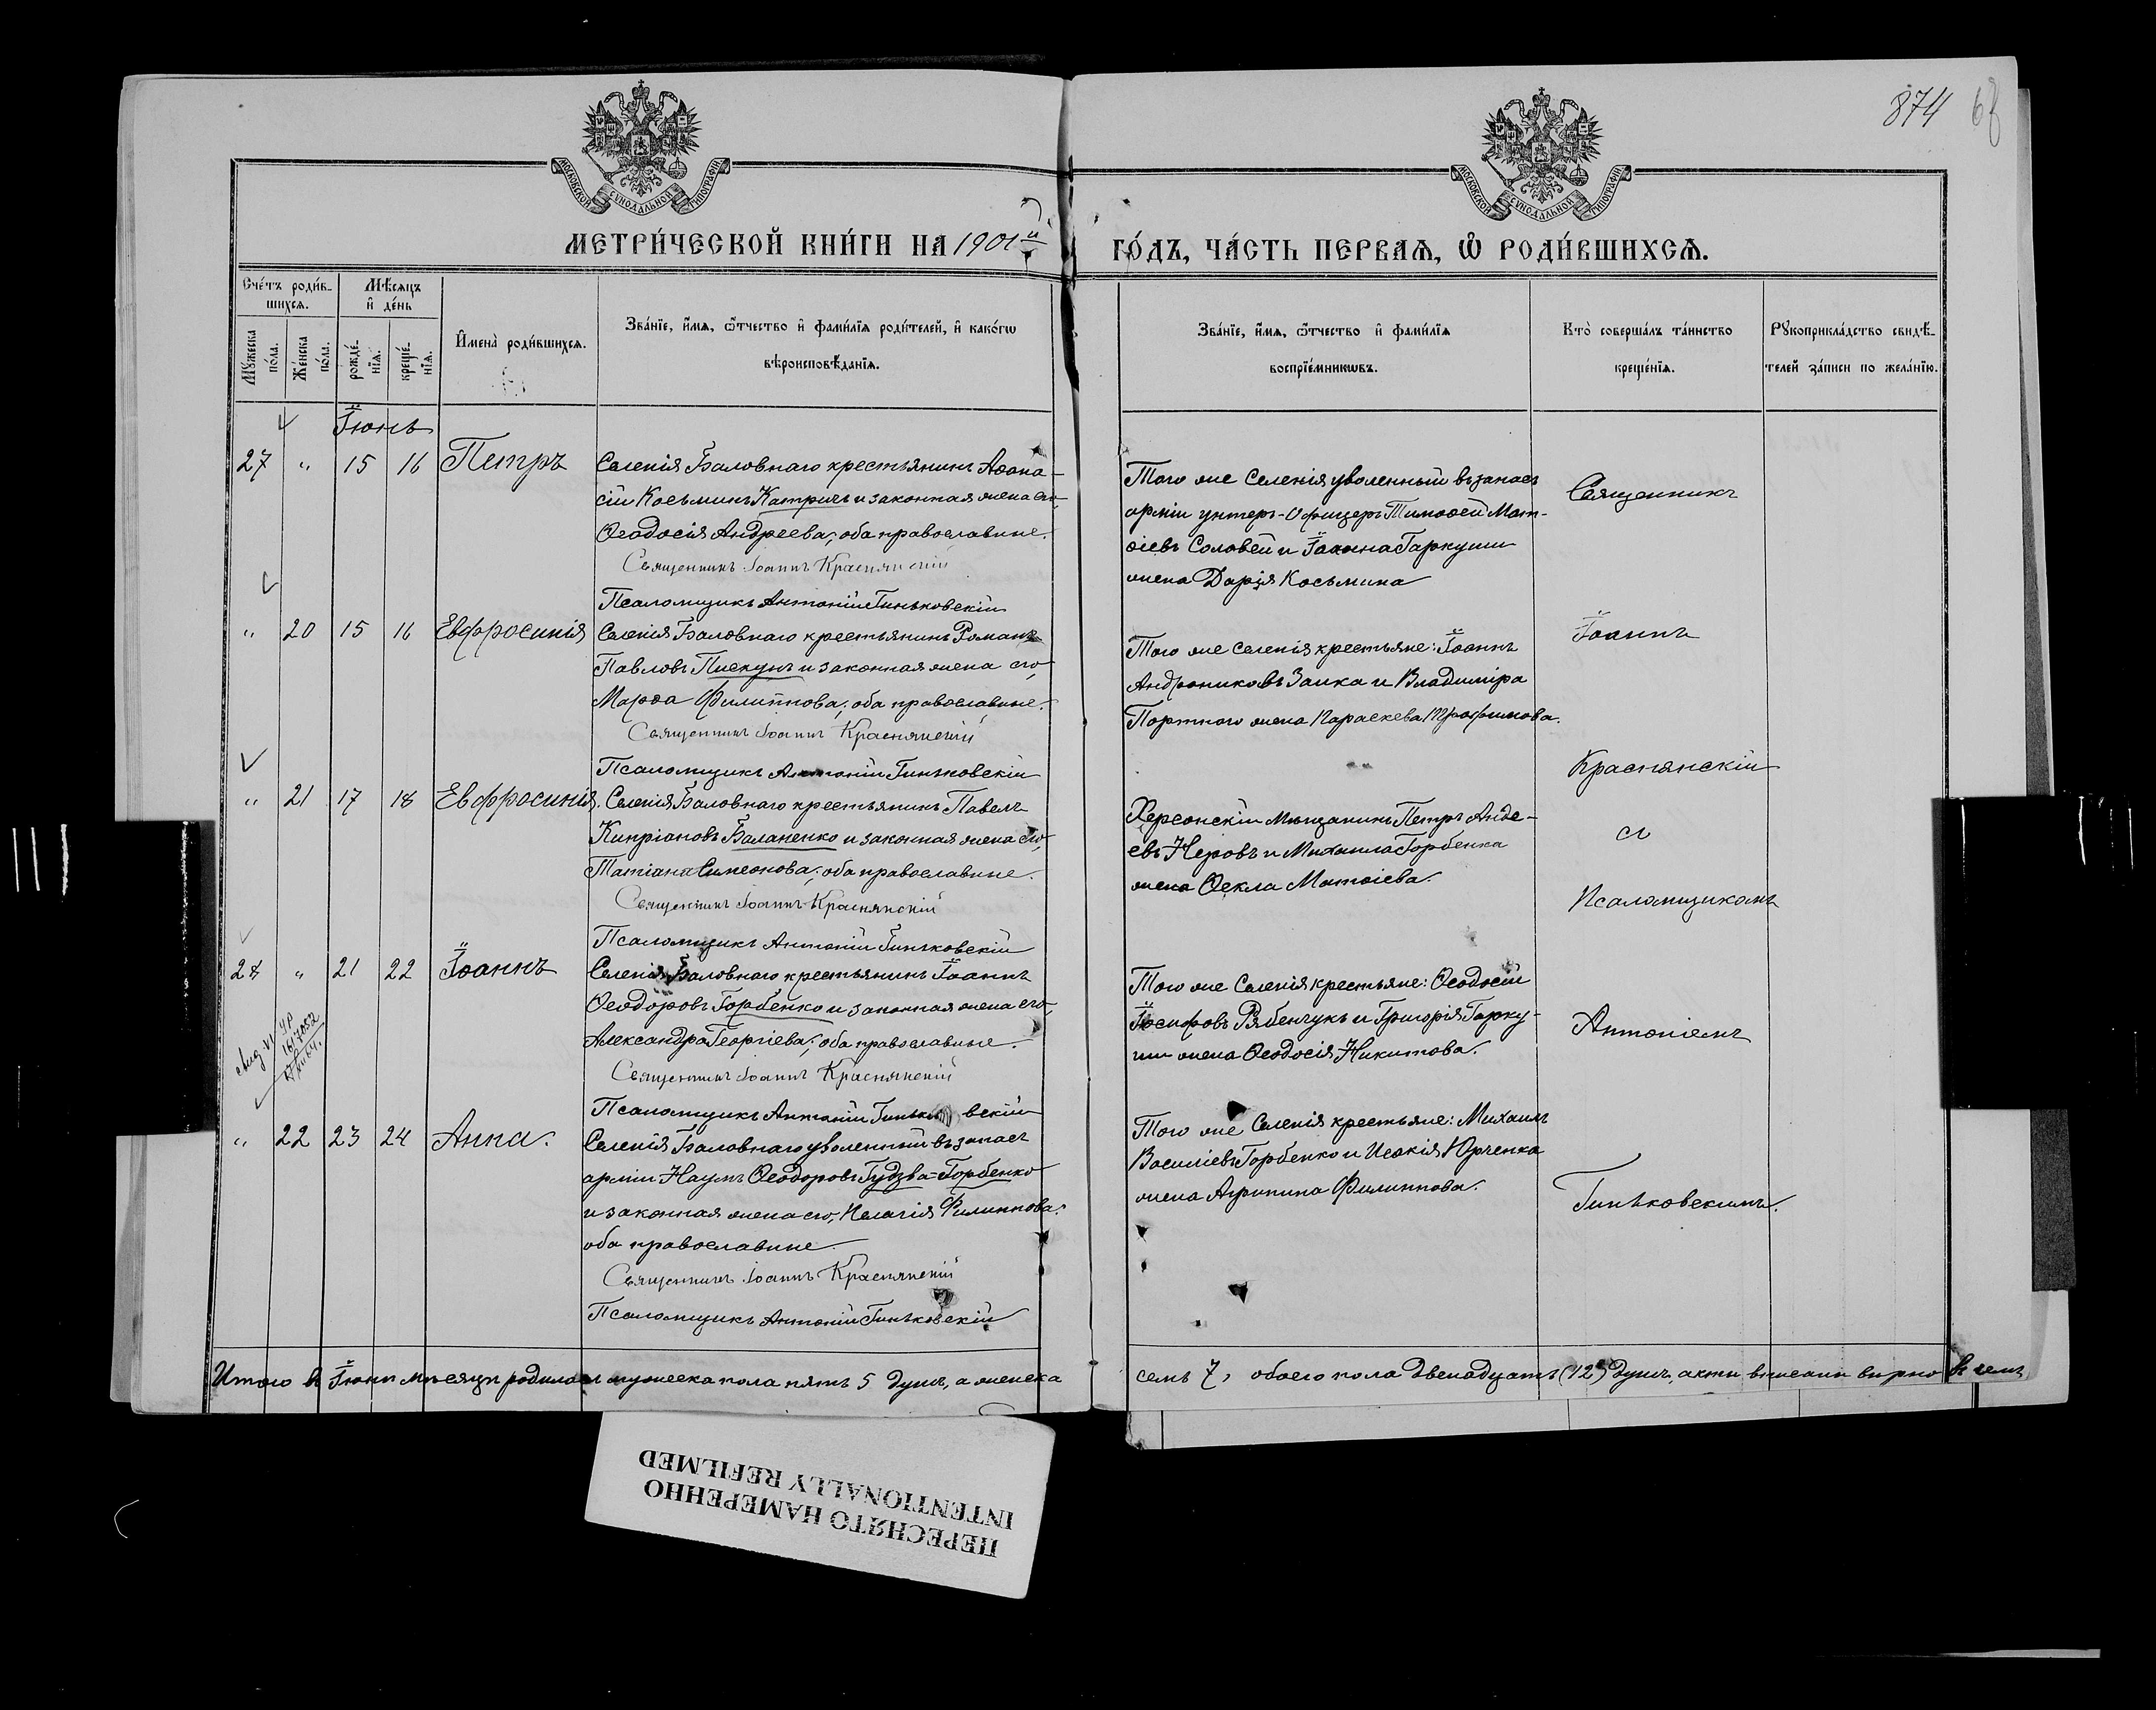 874
МОСКОВСКОЙ СѴНОДАЛЬНОЙ ТИПОГРАФІИ
МОСКОВСКОЙ СѴНОДАЛЬНОЙ ТИПОГРАФІИ
МЕТРИ́ЧЕСКОЙ КНИ́ГИ НА 1901й
ГО́ДЪ, ЧА́СТЬ ПЕРВАѦ, Ѡ РОДИ́ВШИХСѦ.
Сче́тъ роди́в-
шихсѧ.
Мѣ́сѧцъ
и҆ де́нь
Мꙋ́жеска
по́ла.
Же́нска
по́ла.
рожде́-
нїѧ.
креще́-
нїѧ.
И҆мена̀ роди́вшихсѧ.
Зва́нїе, и҆́мѧ, ѻ҆́тчество и҆ фами́лїѧ роди́телей, и҆ како́гѡ
вѣроисповѣ́данїѧ.
Зва́нїе, и҆́мѧ, ѻ҆́тчество и҆ фами́лїѧ
воспрїе́мникѡвъ.
Кто̀ соверша́лъ та́инство
креще́нїѧ.
Рꙋкоприкла́дство свидѣ́-
телей за́писи по жела́нїю.
Іюнь
27 " 15 16 Петръ
Селенія Баловнаго крестьянинъ Аѳана-
сій Косьминъ Катричъ и законная жена его,
Ѳеодосія Андреева; оба православные.
Священникъ Іоаннъ Краснянскій
Псаломщикъ Антоній Гиньковскій
Того же Селенія уволенный въ запасъ
арміи унтеръ-Офицеръ Тимоѳей Мат-
ѳіевъ Соловей и Іоанна Гаркуши
жена Дарія Косьмина
" 20 15 16 Евфросинія
Селенія Баловнаго крестьянинъ Романъ
Павловъ Пискунъ и законная жена его,
Марѳа Филиппова; оба православные.
Священникъ Іоаннъ Краснянскій
Псаломщикъ Антоній Гиньковскій
Того же селенія крестьяне: Іоаннъ
Андрониковъ Заика и Владиміра
Портного жена Параскева Трофимова.
" 21 17 18 Евфросинія.
Селенія Баловнаго крестьянинъ Павелъ
Кипріановъ Баланенко и законная жена его,
Татіана Симеонова; оба православные.
Священникъ Іоаннъ Краснянскій
Псаломщикъ Антоній Гиньковскій
Херсонскій Мѣщанинъ Петръ Анде-
евъ Неровъ и Михаила Горбенка
жена Ѳекла Матѳіева.
28 " 21 22 Іоаннъ
Селенія Баловнаго крестьянинъ Іоаннъ
Ѳеодоровъ Горбенко и законная жена его,
Александра Георгіева; оба православные.
Священникъ Іоаннъ Краснянскій
Псаломщикъ Антоній Гиньковскій
Того же Селенія крестьяне: Ѳеодосій
Іосифовъ Рябенчукъ и Григорія Гарку-
ши жена Ѳеодосія Никитова.
" 22 23 24 Анна.
Селенія Баловнаго уволенный въ запасъ
арміи Наумъ Ѳеодоровъ Гудзва-Горбенко
и законная жена его, Пелагія Филиппова:
оба православные.
Священникъ Іоаннъ Краснянскій
Псаломщикъ Антоній Гиньковскій
Того же Селенія крестьяне: Михаилъ
Василіевъ Горбенко и Исакія Юрченка
жена Агрипина Филиппова.
Священникъ
Іоаннъ
Краснянскій
съ
Псаломщикомъ
Антоніемъ
Гиньковскимъ.
Итого въ Іюнѣ мѣсяцѣ родилось мужеска пола пять 5 душъ, а женска
семь 7, обоего пола двенадцать (12) душъ, акты вписаны вѣрно въ чемъ
ПЕРЕСНЯТО НАМЕРЕННО
INTENTIONALLY REFILMED